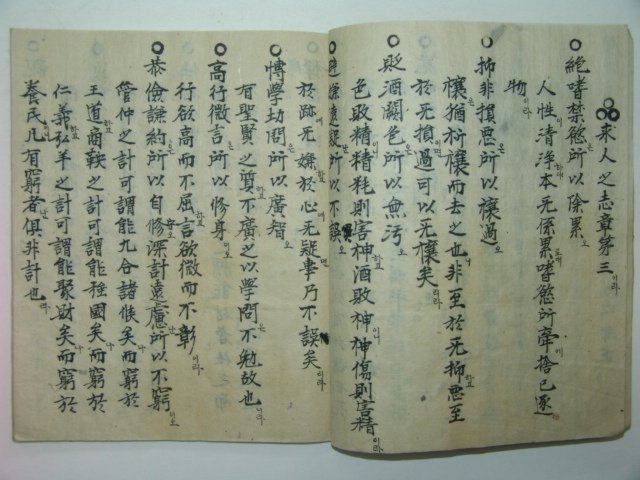 求人之志章第三
○絕嗜禁慾所以除累오
人性清淨本无係累嗜慾所牽捨己逐
物이라
○抑非損惡所以禳過오
禳猶祈禳而去之也非至於无抑惡至
於无損過可以无禳矣이라
○貶酒闕色所以無汚오
色敗精精耗則害神酒敗神神傷則害精이라
○避嫌遠疑所以不誤오
於跡无嫌於心无疑事乃不誤矣이라
○博學切問所以廣智오
有聖賢之質不廣之以學問不勉故也이라
○高行微言所以修身오
行欲高而不屈言欲微而不彰이라
○恭儉謙約所以自修오深計遠慮所以不窮이오
管仲之計可謂能九合諸侯矣而窮於
王道商鞅之計可謂能强國矣而窮於
仁義弘羊之計可謂能聚財矣而窮於
養民凡有窮者俱非計也이라